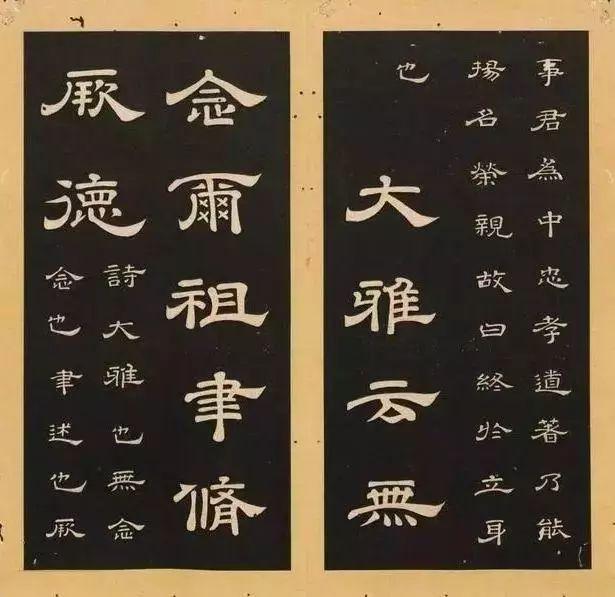 事君為中忠孝道著乃能
揚名榮親故曰終於立身
也
大雅云無
念爾祖聿脩
厥德
詩大雅也無念
念也聿述也厥